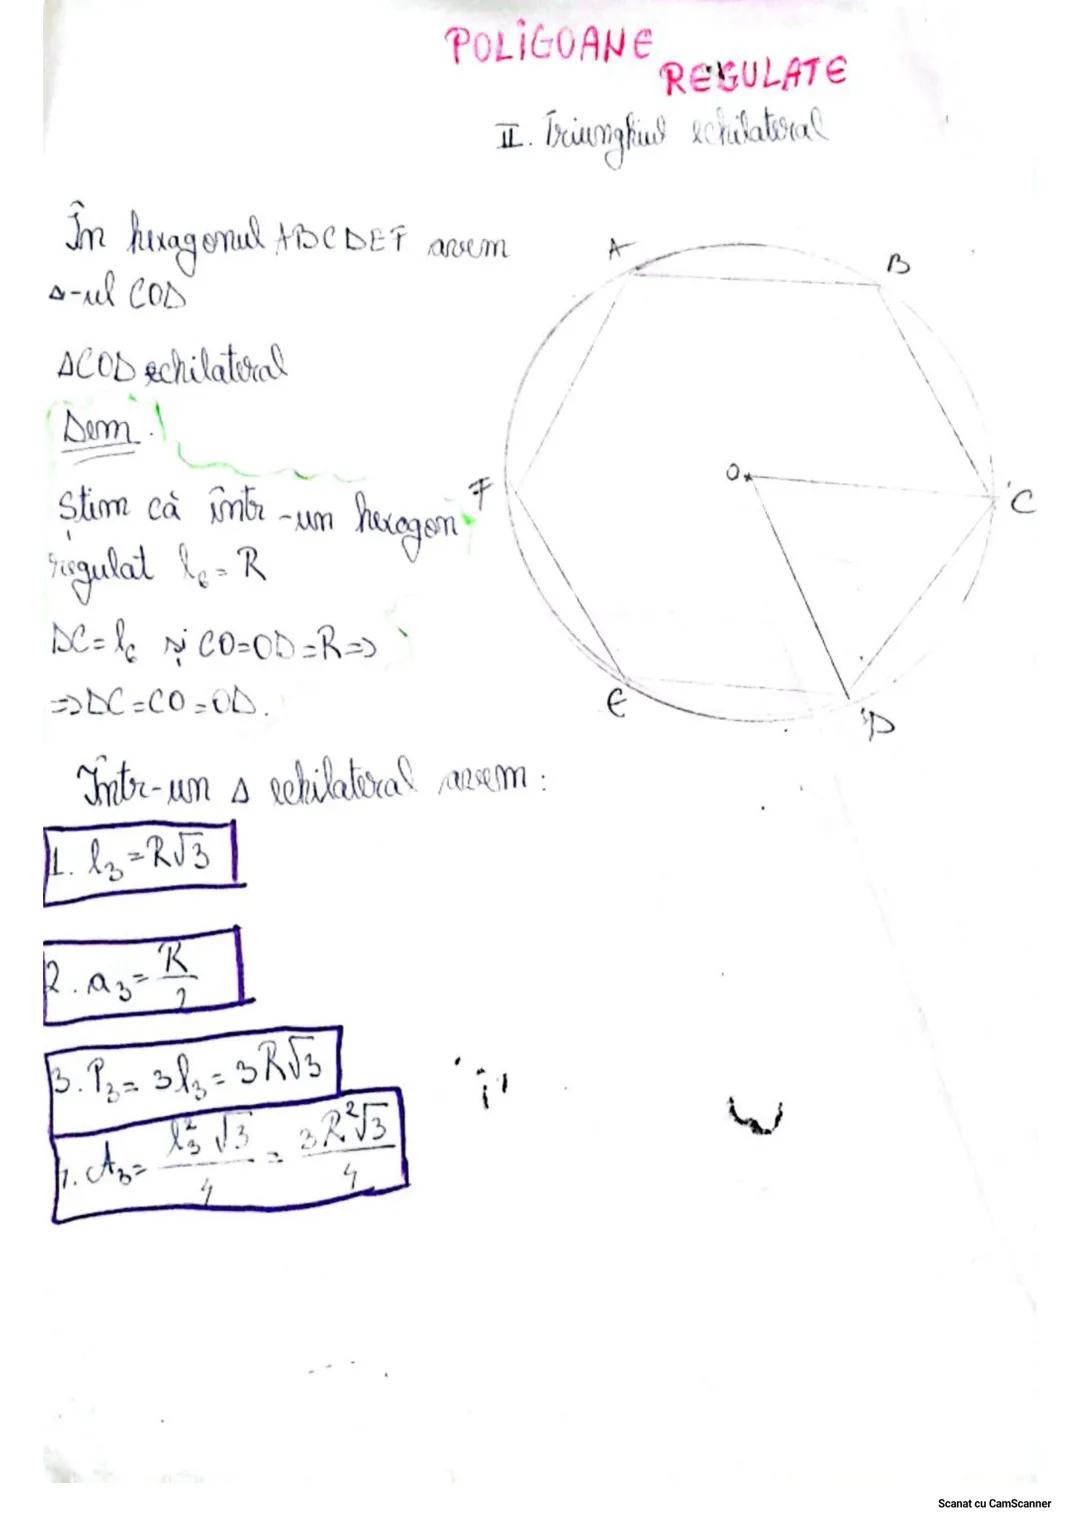 POLIGOANE
REGULATE
II. Triunghiul echilateral
În hexagonul ABCDEF avem
Δ-ul COD
ΔCOD echilateral
Dem.
Știm că într-un hexagon
regulat l₆ = R
DC = l₆ și CO=OD=R =>
=> DC = CO = OD.
Într-un Δ echilateral avem:
1. l₃ = R√3
2. a₃ = R/2
3. P₃ = 3l₃ = 3R√3
A₃ = l₃²√3/4 = 3R²√3/4
A
B
O
F
C
E
D
Scanat cu CamScanner